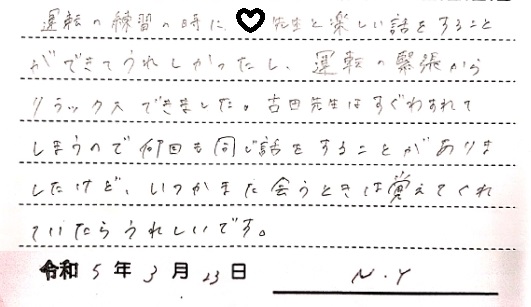 運転の練習の時に♥先生と楽しい話をすること
ができてうれしかったし、運転の緊張から
リラックスできました。吉田先生はすぐわすれて
しまうので何回も同じ話をすることがありま
したけど、いつかまた会うときは覚えてくれ
ていたらうれしいです。
令和5年3月23日 N.Y